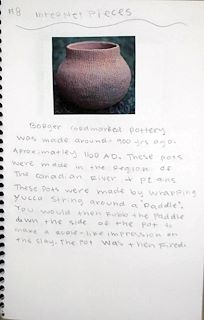 #8 Internet Pieces
Borger cordmarked pottery
was made around 900 yrs ago.
Aproximatley 1100 AD. These pots
were made in the region of
the Canadian River + plains
These pots were made by wrapping
yucca string around a "Paddle".
You would then rubb the paddle
down the side of the pot to
make a scale-like impression on
the clay. The pot was then fired.